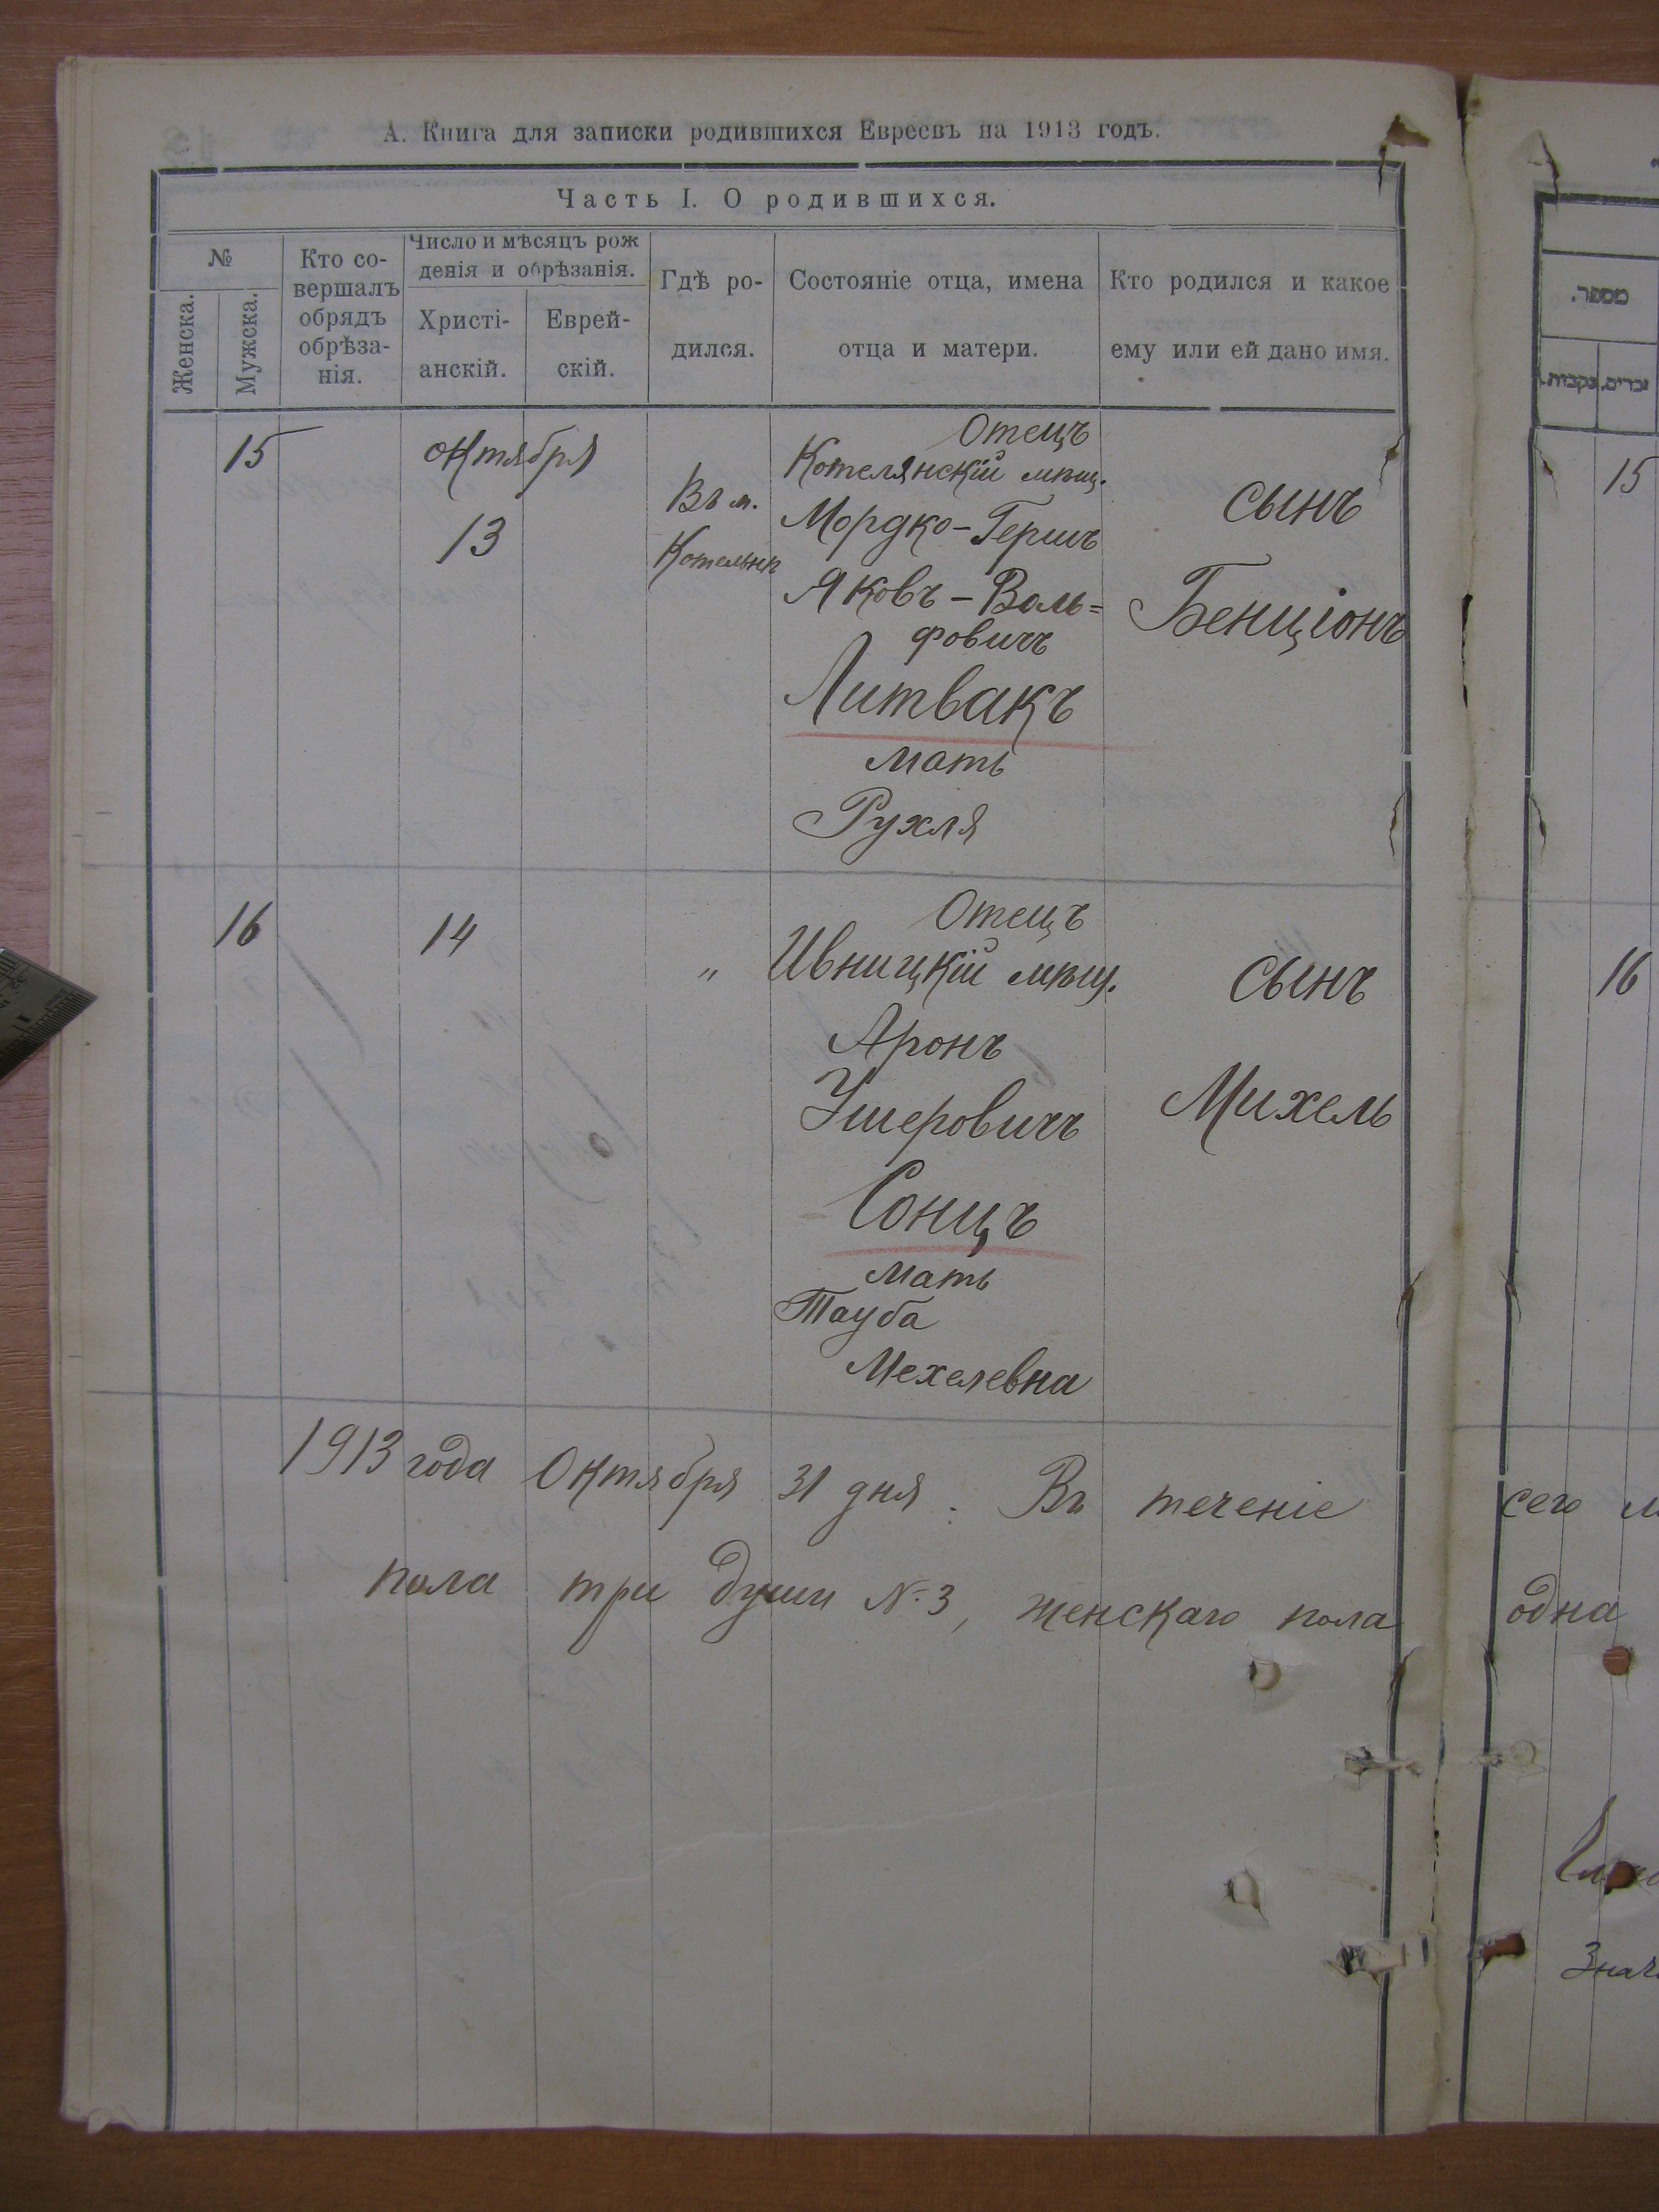 А. Книга для записки родившихся Евреевъ на 1913 годъ.
Часть I. О родившихся.
№
Женска.
Мужска.
Кто со-
вершалъ
обрядъ
обрѣза-
нія.
Число и мѣсяцъ рож
денія и обрѣзанія.
Христі-
анскій.
Еврей-
скій.
Гдѣ ро-
дился.
Состояніе отца, имена
отца и матери.
Кто родился и какое
ему или ей дано имя.
15
октября
13
Въ м.
Котельнѣ
Отецъ
Котелянскій мѣщ.
Мордко-Гершъ
Яковъ-Воль=
фовичъ
Литвакъ
мать
Рухля
сынъ
Бенціонъ
16
14
"
Отецъ
Ивницкій мѣщ.
Аронъ
Ушеровичъ
Сонцъ
мать
Тауба
Мехелевна
сынъ
Михель
1913 года Октября 31 дня. Въ теченіе сего
пола три души №3, женскаго пола одна
מספר.
נקבות.
זכרים.
15
16